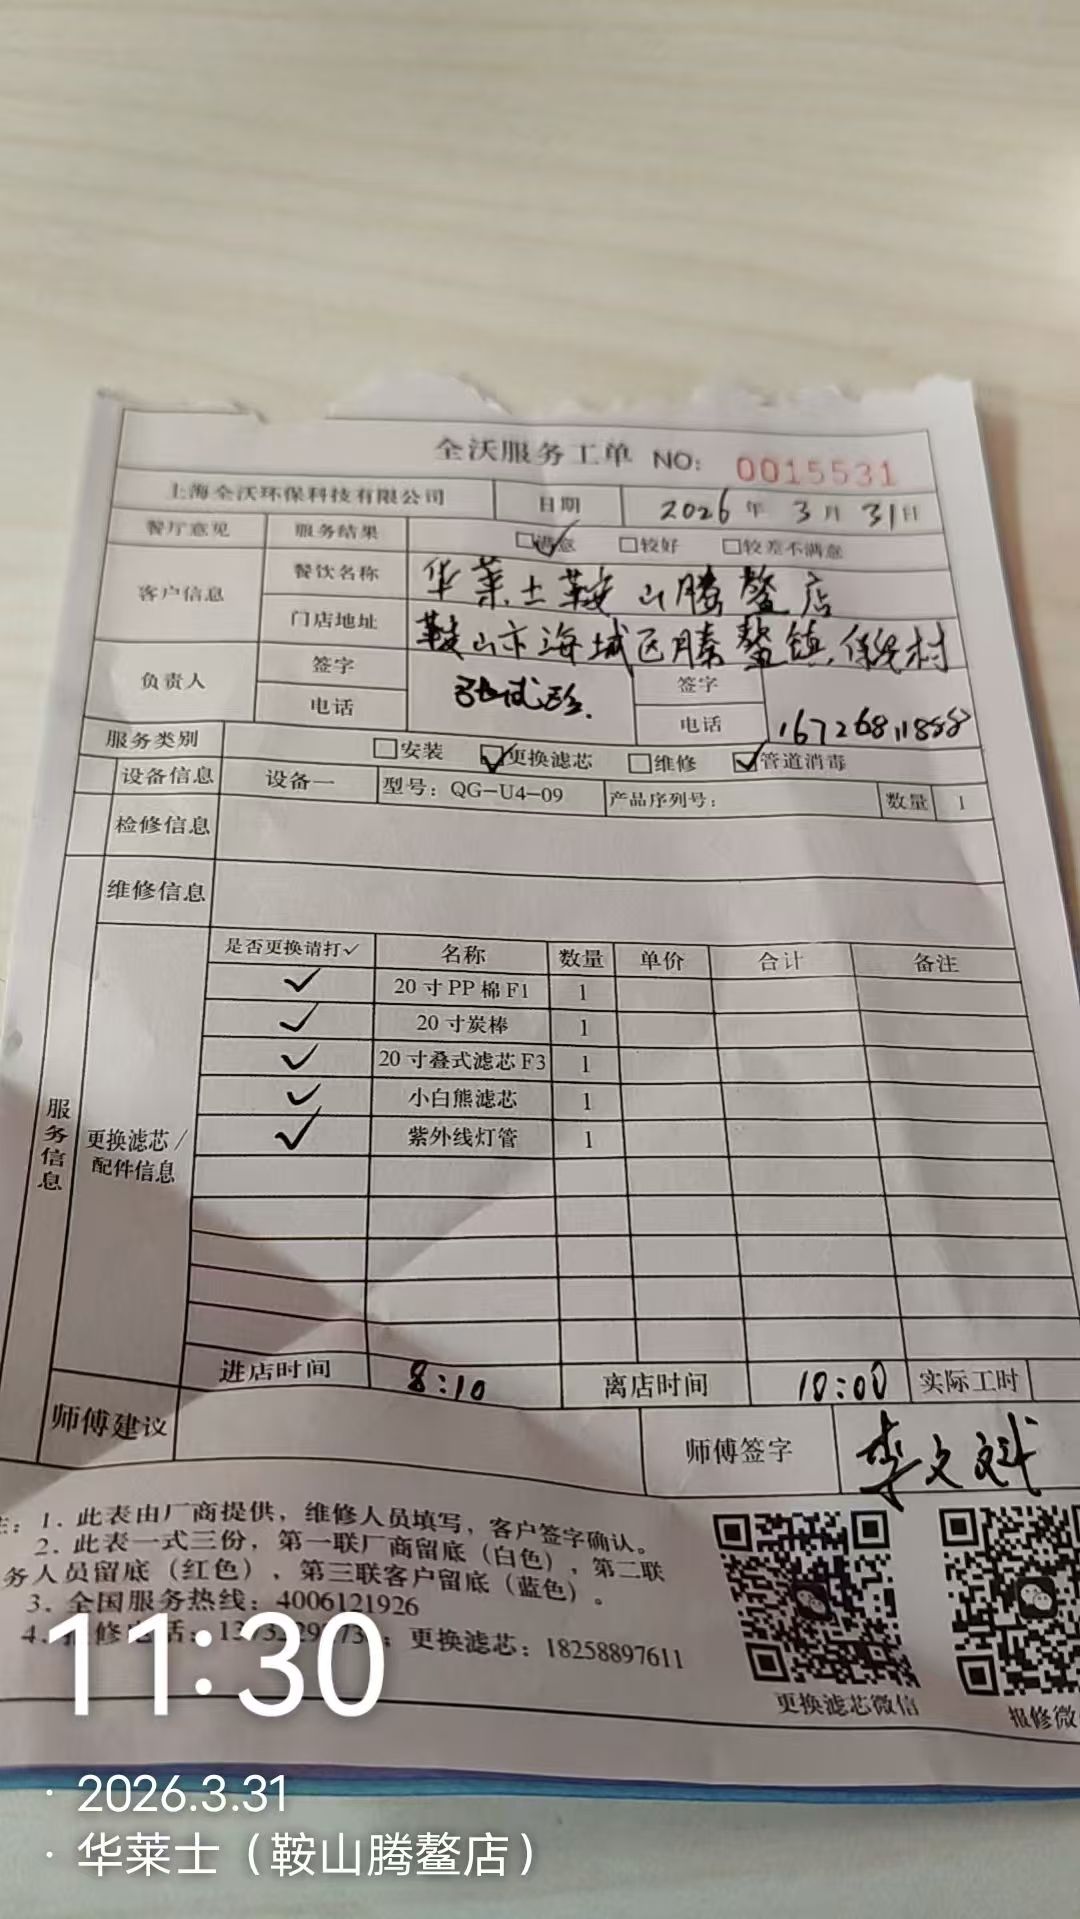 全沃服务工单 NO: 0015531
上海全沃环保科技有限公司 日期 2026年 3月 31日
餐厅意见 服务结果 □满意 □较好 □较差不满意
客户信息 餐饮名称 华莱士鞍山腾鳌店
门店地址 鞍山市海城区腾鳌镇 村
负责人 签字 签字
电话 电话 16726811888
服务类别 □安装 □更换滤芯 □维修 □管道消毒
设备信息 设备一 型号: QG-U4-09 产品序列号: 数量 1
检修信息
维修信息
是否更换请打✓ 名称 数量 单价 合计 备注
✓ 20寸PP棉F1 1
✓ 20寸炭棒 1
✓ 20寸叠式滤芯F3 1
✓ 小白熊滤芯 1
✓ 紫外线灯管 1
服务信息
更换滤芯/
配件信息
进店时间 8:10 离店时间 10:00 实际工时
师傅建议 师傅签字 李文斌
注: 1. 此表由厂商提供, 维修人员填写, 客户签字确认。
2. 此表一式三份, 第一联厂商留底(白色), 第二联
务人员留底(红色), 第三联客户留底(蓝色)。
3. 全国服务热线: 4006121926
4. 报修电话: 更换滤芯: 18258897611
更换滤芯微信 报修微
11:30
· 2026.3.31
· 华莱士(鞍山腾鳌店)